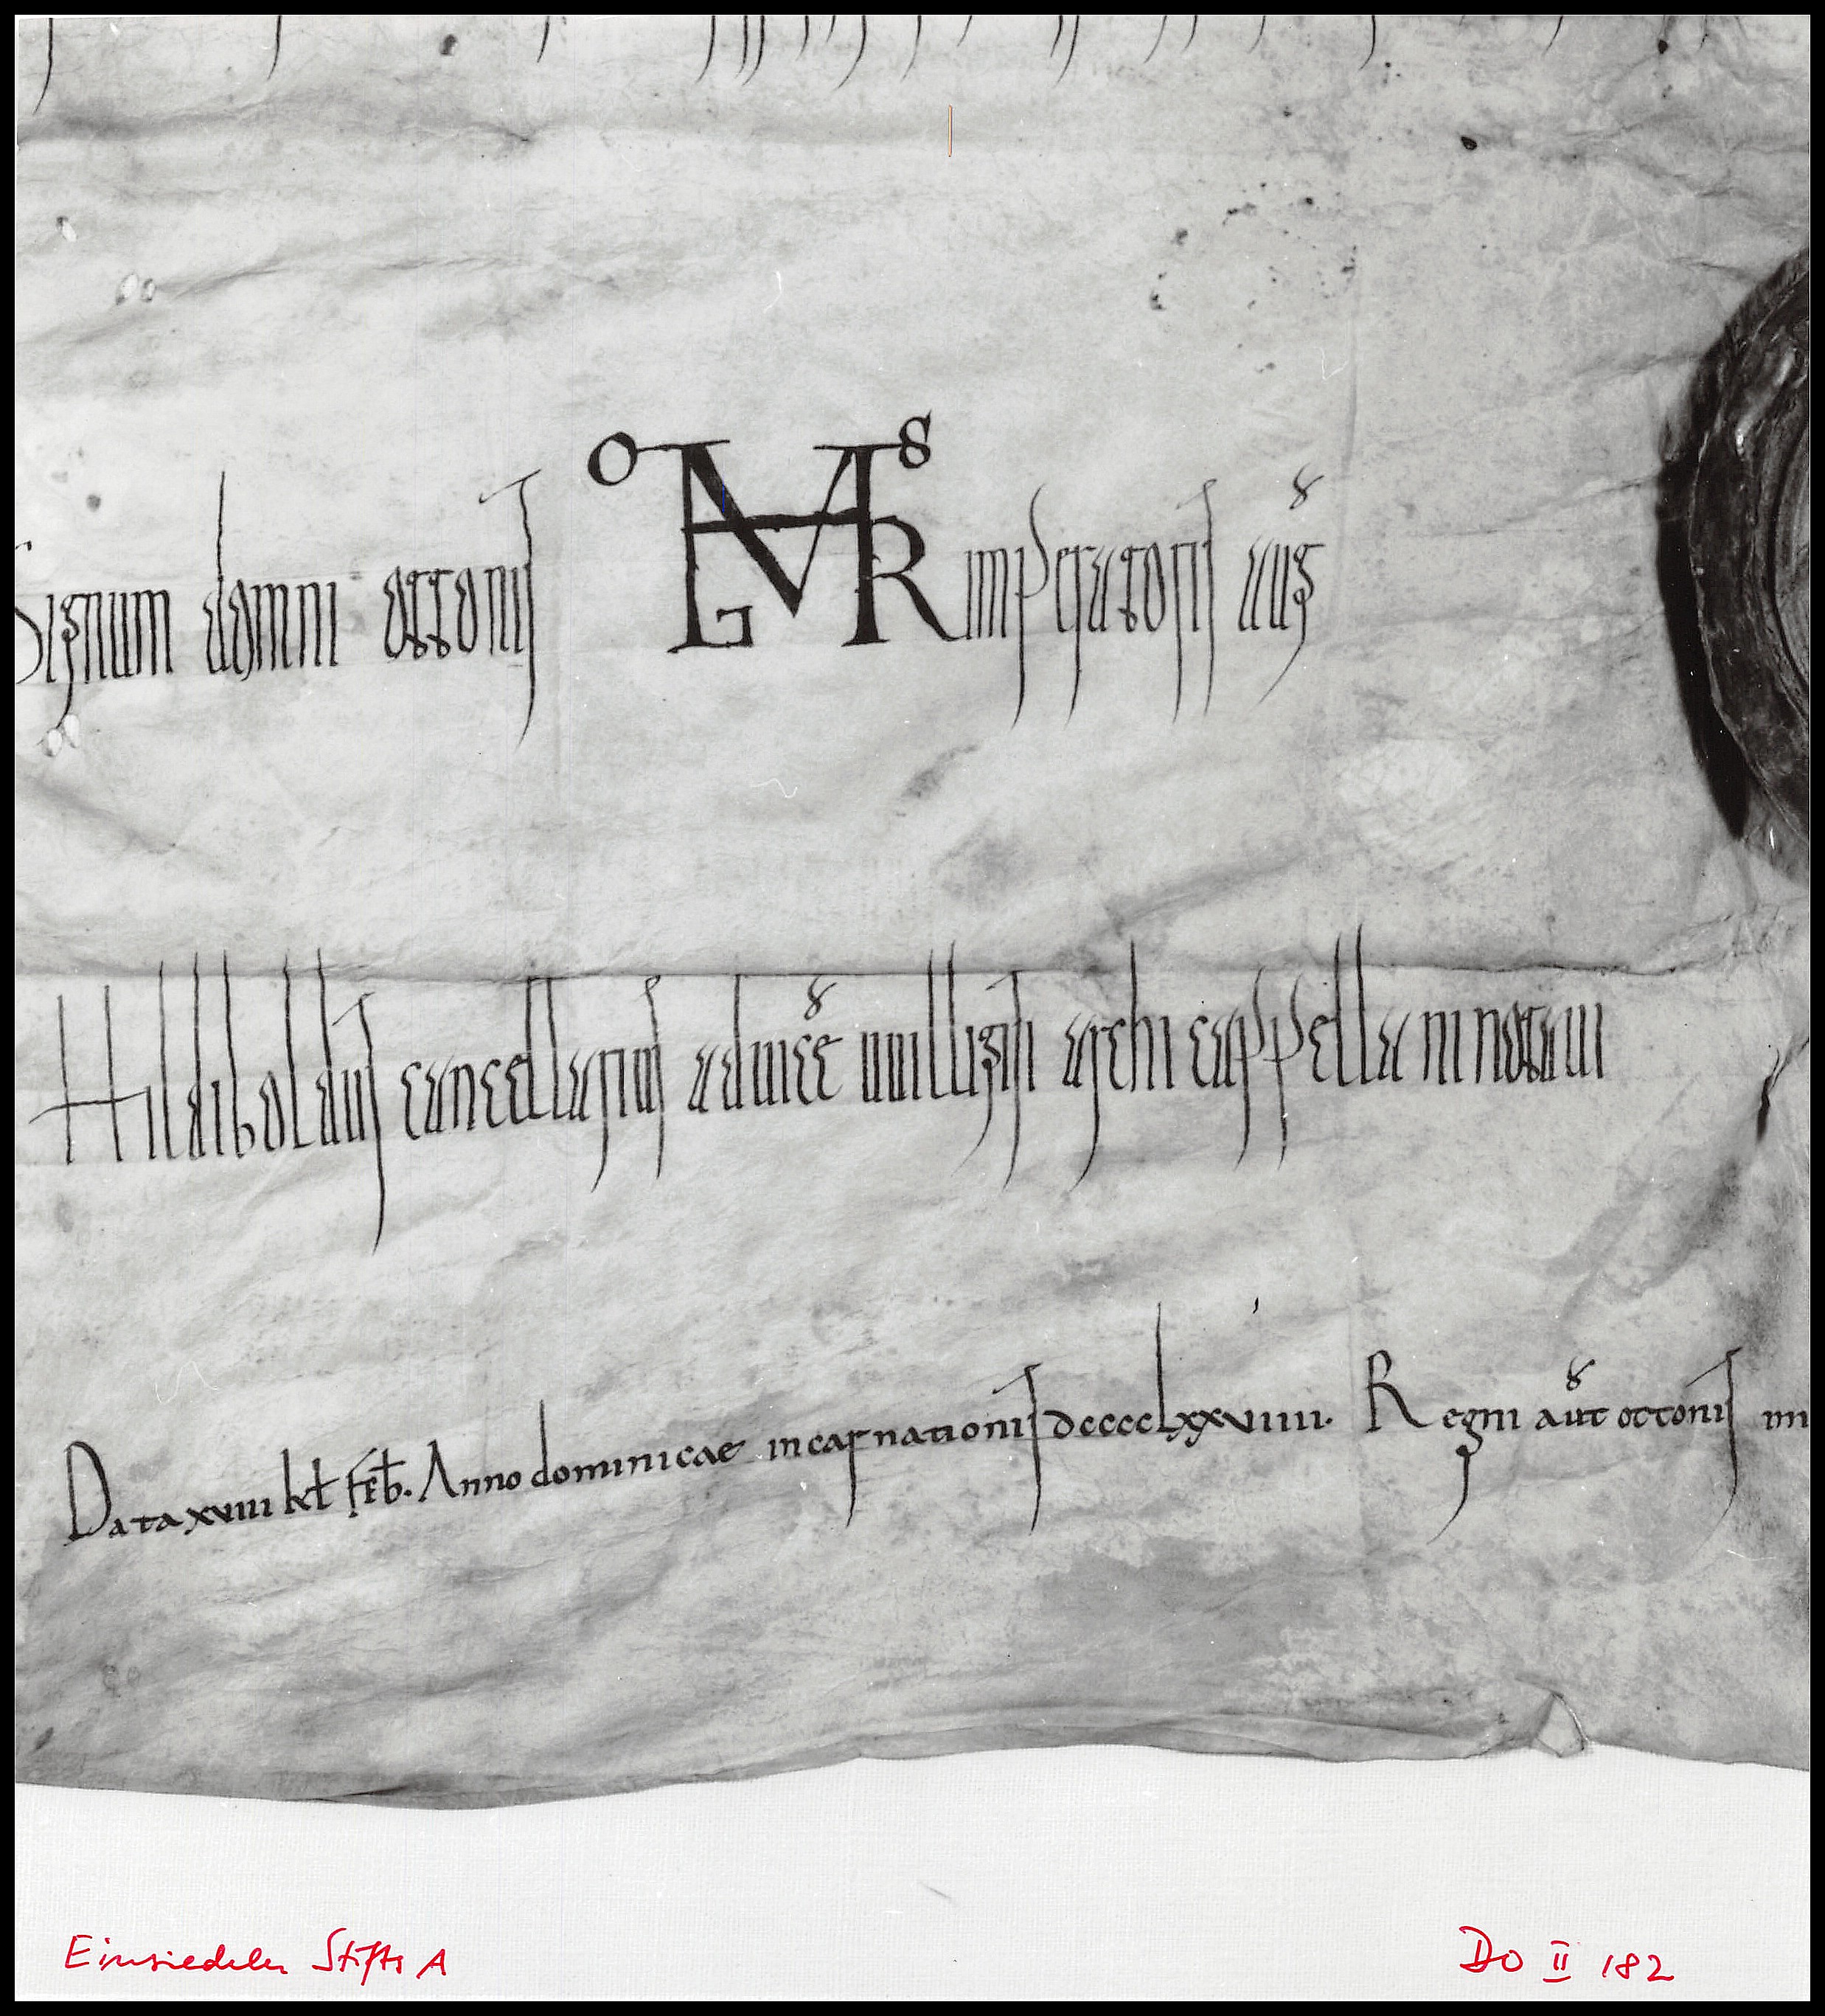 Signum domni ottonis imperatoris aug
Hildiboldus cancellarius aduice uuilligisi archi cappellani notaui
Data xviiii kł feb. Anno dominicae incarnationis dcccclxxviiii. Regni aut ottonis iiii
Einsiedeln Stifts A
DO II 182